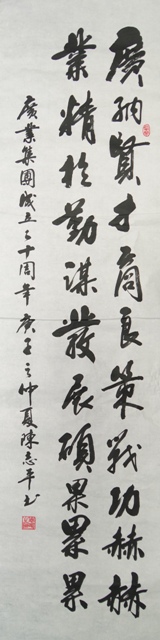 廣納賢才商良策戰功赫赫
業精於勤謀發展碩果累累
廣業集團成立二十周年庚子之仲夏陳志平书